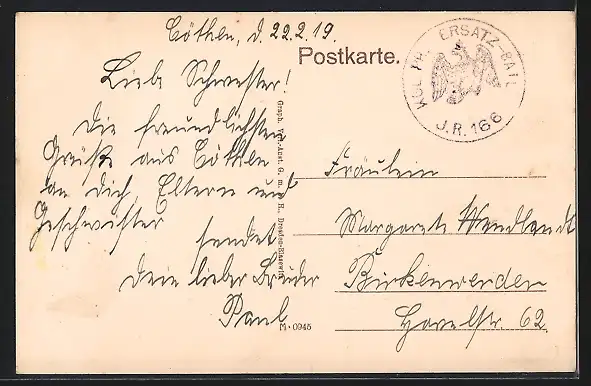 Cöthen, d. 22.2.19.
Postkarte.
KGL. PR. ERSATZ-BATL.
J.R. 166
Liebe Schwester!
Die freundlichsten
Grüße aus Cöthen
an dich, Eltern und
Geschwister
sendet
Dein lieber Bruder
Paul
Graph. Verl.-Anst. G. m. b. H., Dresden-Blasewitz
M. 0945
Fräulein
Margarete Wendlandt
Birkenwerder
Havelstr 62.